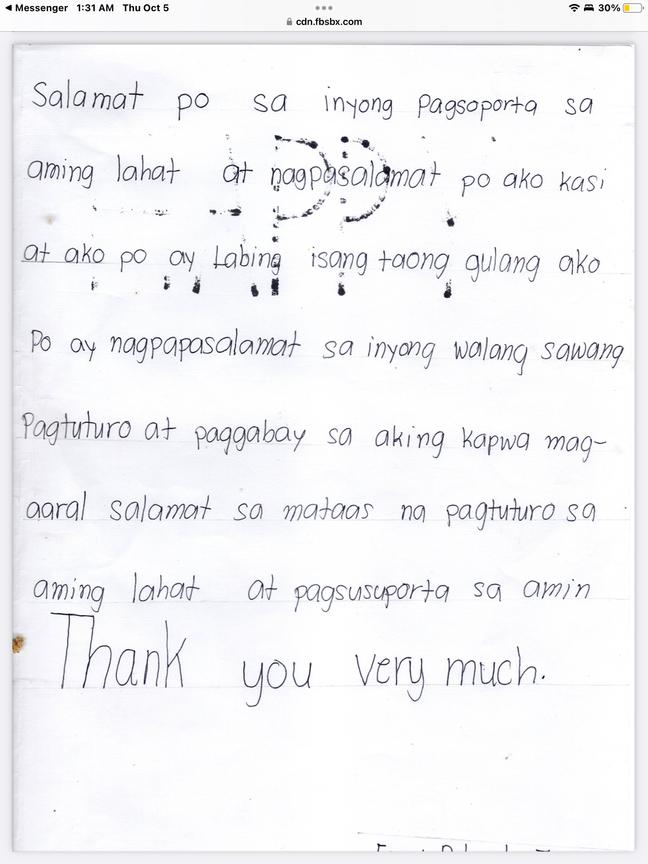 Messenger 1:31 AM Thu Oct 5 30%
cdn.fbsbx.com
Salamat po sa inyong Pagsoporta sa
aming lahat at nagpasalamat po ako kasi
at ako po ay Labing isang taong gulang ako
Po ay nagpapasalamat sa inyong walang sawang
Pagtuturo at paggabay sa aking kapwa mag-
aaral salamat sa mataas na pagtuturo sa
aming lahat at pagsusuporta sa amin
Thank you very much.